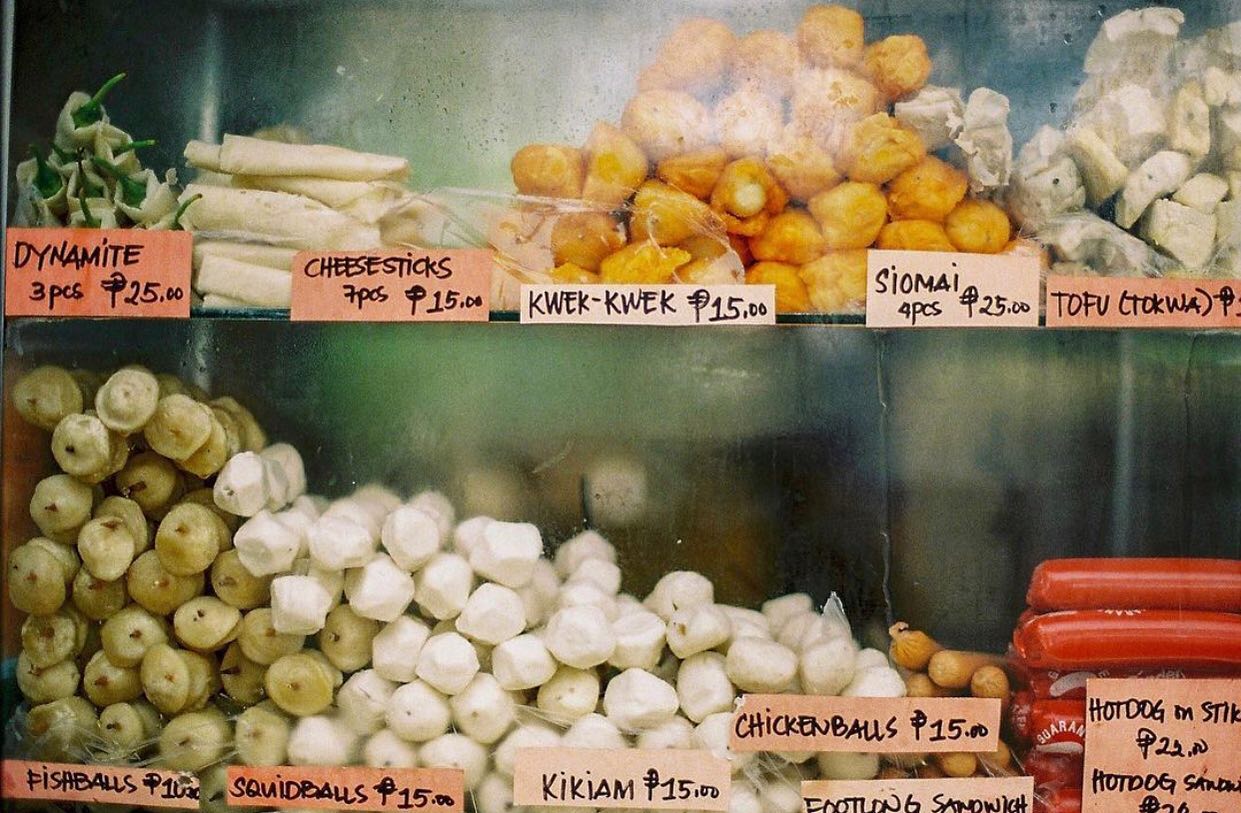 DYNAMITE
3pcs ₱25.00
CHEESESTICKS
7pcs ₱15.00
KWEK-KWEK ₱15.00
SIOMAI
4pcs ₱25.00
TOFU (TOKWA) ₱1
CHICKENBALLS ₱15.00
HOTDOG on STIK
HOTDOG SANDWI
FISHBALLS ₱10.00
SQUIDBALLS ₱15.00
KIKIAM ₱15.00
FOOTLONG SANDWICH